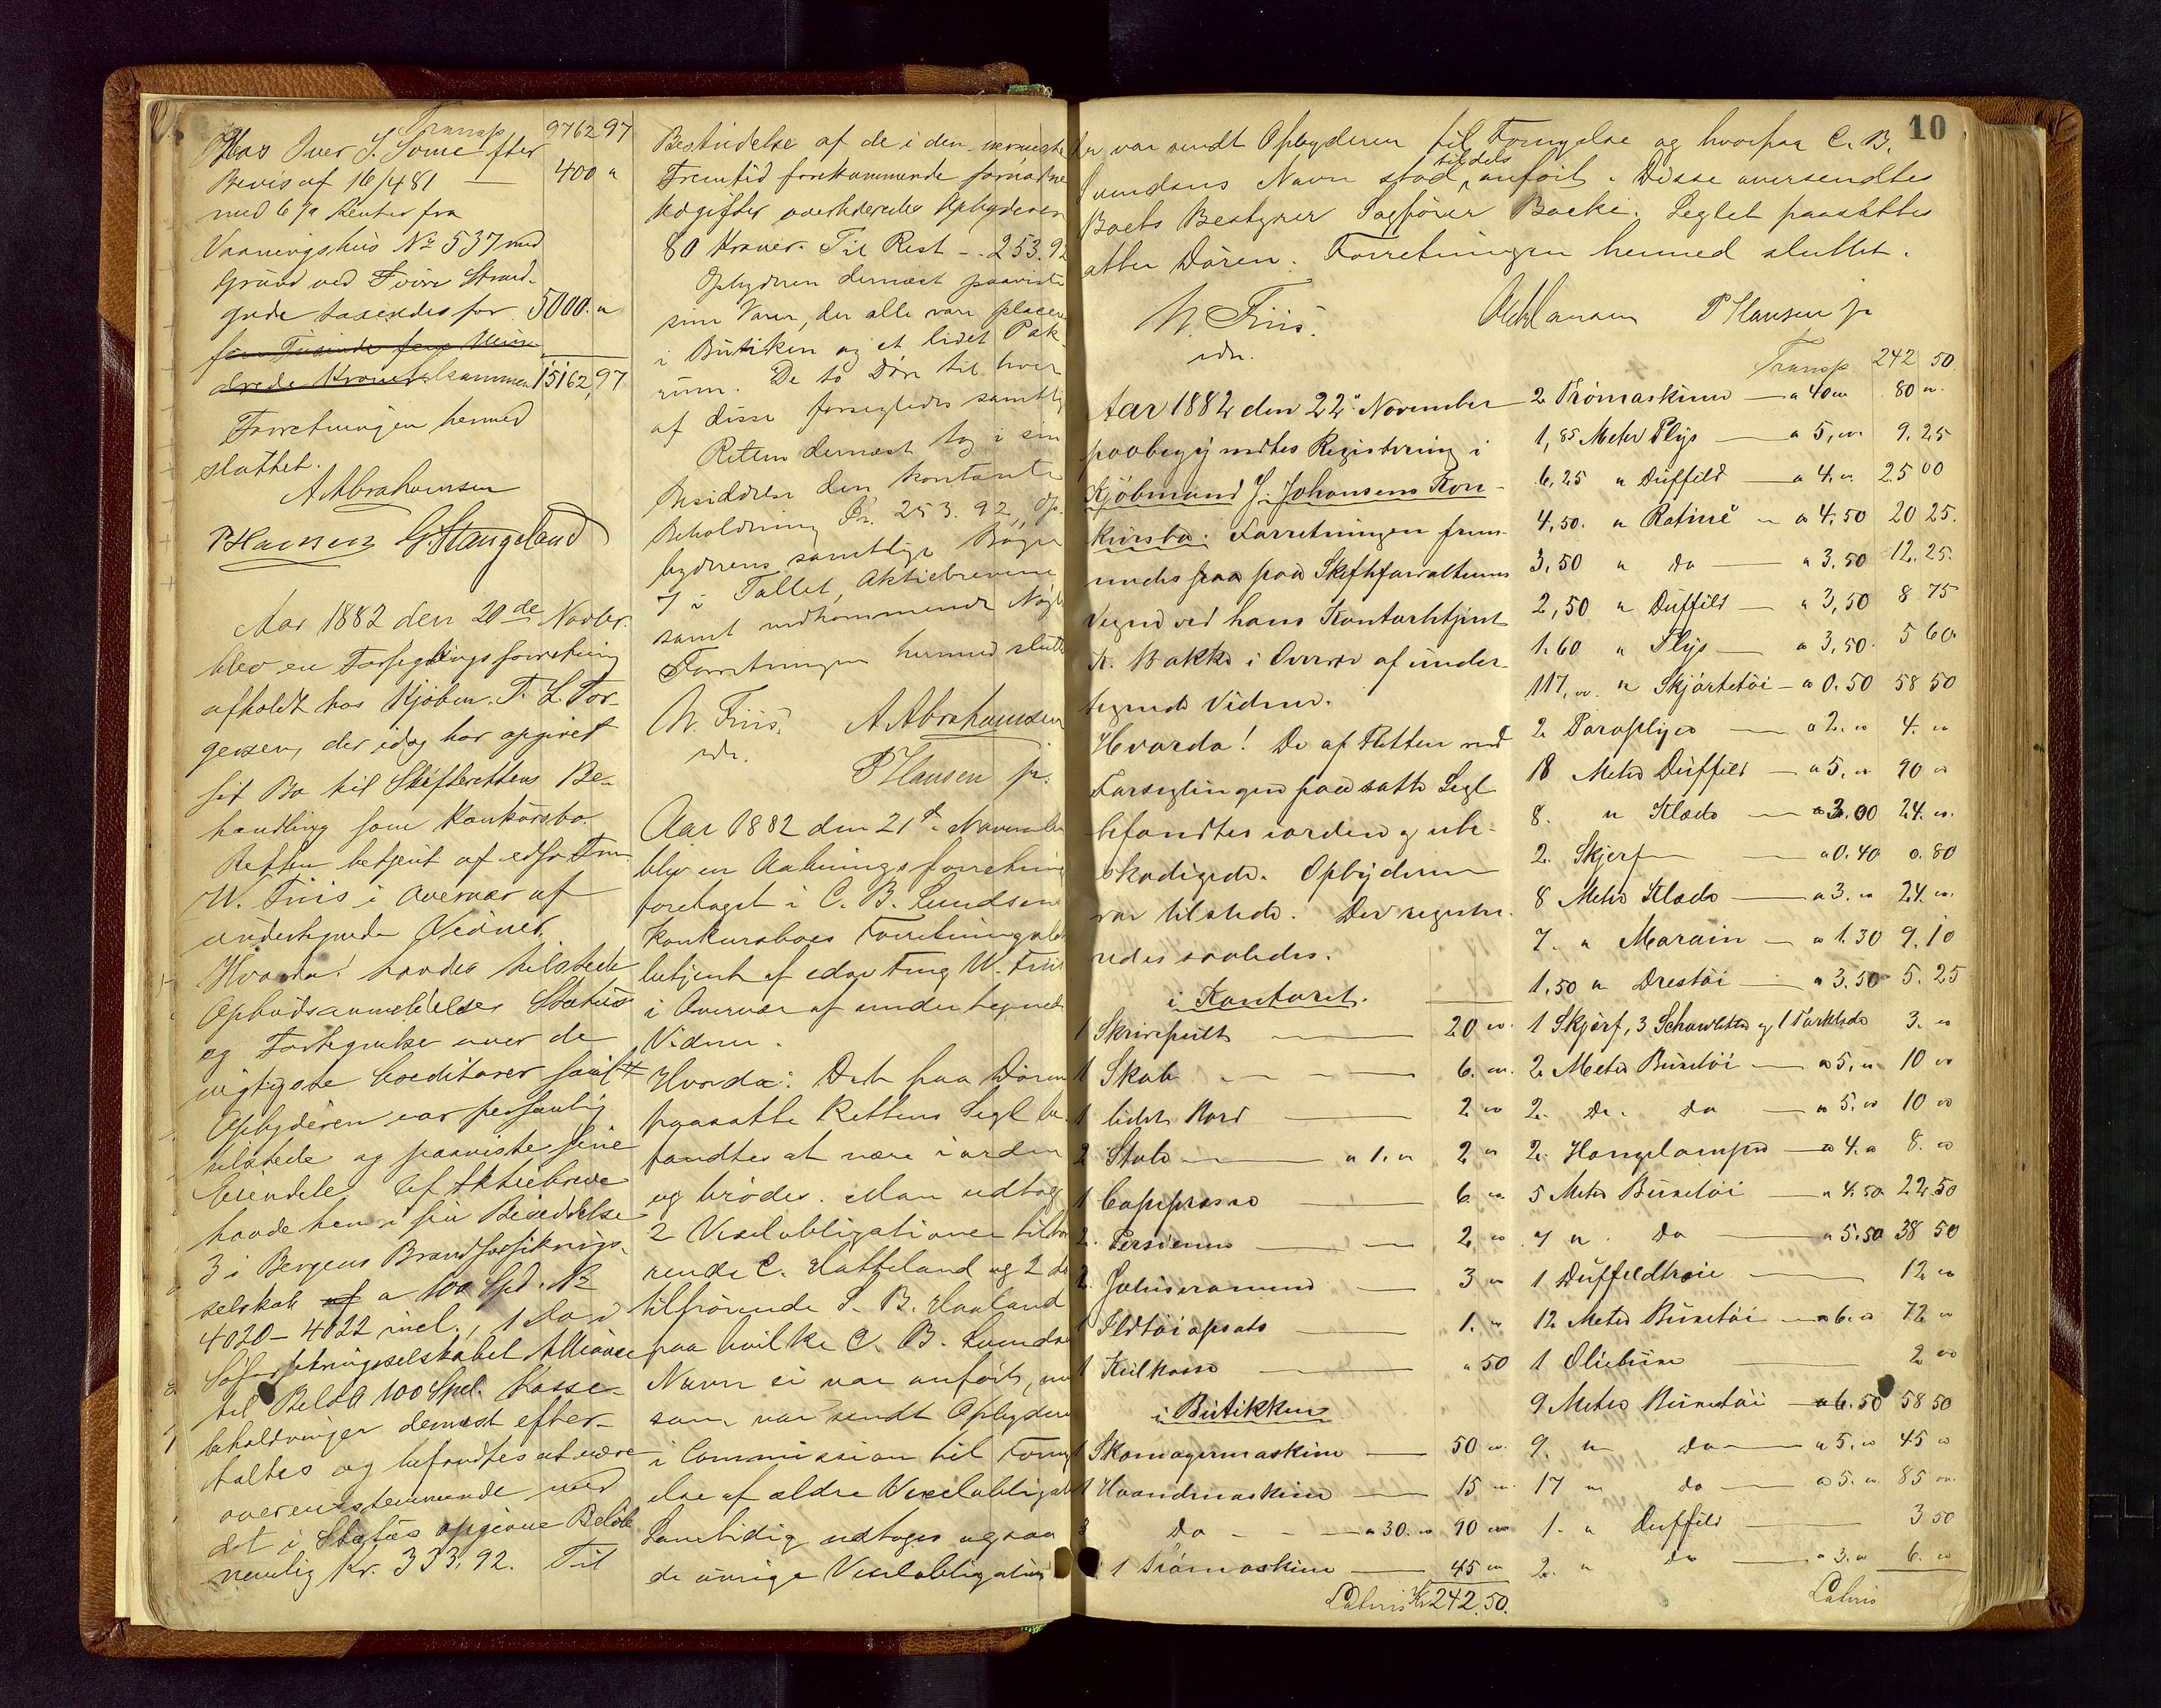 Transp 9762 97
Hos Iver S. Some efter
Bevis af 16/4 81 — 400 "
med 6 % Renter fra
Vaaningshus No 537 med
Grund ved Søvre Strand-
gade taxeredes for 5000. "
fem Tusinde fem Hun-
drede Kroner tilsammen 15162,97
Forretningen hermed
sluttet.
A Abrahamsen
P Hansen G. Stangeland
Aar 1882 den 20de Novbr.
blev en Forseglingsforretning
afholdt hos Kjøbm. T. L. Tor-
gersen, der idag har opgivet
sit Bo til Skifterettens Be-
handling som Konkursbo.
Retten betjent af edsv. Fm
W. Friis i Overvær af
undertegnede Vidner.
Hvorda! havdes tilstede
Opbudsanmeldelse, Status
og Fortegnelse over de
vigtigste Creditorer samt
Opbyderen var personlig
tilstede og paaviste sine
Eiendele. Af Aktiebreve
havde han i sin Besiddelse
3 i Bergens Brandforsikrings-
selskab af a 100 Spd. No
4020 - 4022 incl., 1 do i
Søforsikringsselskabet Alliance
til Beløb 100 Spd. Kasse-
beholdningen dernæst efter-
taltes og befandtes at være
overensstemmende med
det i Status opgivne Beløb
nemlig Kr. 333,92. Til
Bestridelse af de i den nærmeste
Fremtid forekommende fornødne
Udgifter overleveredes Opbyderen
80 Kroner. Til Rest - 253.92
Opbyderen dernæst paaviste
sine Varer, der alle vare placeret
i Butiken og et lidet Pak-
rum. De to Døre til hver
af disse forsegledes samtlig
Retten dernæst tog i sin
Besiddelse den kontante
Beholdning Kr. 253.92, Op-
byderens samtlige Bøger
7 i Tallet, Aktiebrevene
samt vedkommende Nøgler
Forretningen hermed slutt
W. Friis. A Abrahamsen
edsv. P Hansen jr.
Aar 1882 den 21de November
blev en Aabningsforretning
foretaget i C. B. Svendsens
Konkursboes Forretningslok
betjent af edsv. Fmg W. Friis
i Overvær af undertegnede
Vidner.
Hvorda: Det paa Døren
paasatte Rettens Segl be-
fandtes at være i orden
og brødes. Man udtog
2 Vexelobligationer tilhø
rende C. Hatteland og 2 do
tilhørende S. B. Haaland
paa hvilke C. B. Svendse
Navn ei var anført, m
som var sendt Opbyderen
i Commission til Forny
else af ældre Vexelobligat
Samtidig udtoges ogsaa
de øvrige Vexelobligation
10
der var sendt Opbyderen til Fornyelse og hvorpaa C. B.
Svendsens Navn stod tildels anført. Disse oversendtes
Boets Bestyrer Sagfører Backe. Seglet paasattes
atter Døren. Forretningen hermed sluttet.
W. Friis. P Hansen jr
edsv.
Aar 1882 den 22de November
paabegyndtes Registrering i
Kjøbmand J. Johansens Kon-
kursbo. Forretningen frem-
medes paa paa Skifteforvalterens
Vegne ved hans Kontorbetjent
K. Bakke i Overvær af under-
tegnede Vidner.
Hvorda! De af Retten ved
Forseglingen paasatte Segl
befandtes i orden og ube-
skadigede. Opbyderen
var tilstede. Der registre-
redes saaledes.
i Kontoret.
1 Skrivepult — 20 "
1 Skab — 6. "
1 lidet Bord — 2 "
2 Stole — a 1. " 2 "
1 Copipresse — 6 "
2. Persienner — 2 "
2. Jalousirammer — 3 "
1 Ildtøiopsats — 1. "
1 Kulkasse — " 50
i Butikken
1 Skomagermaskine — 50 "
1 Haandmaskine — 15 "
3 Do — a 30. " 90 "
1 Trømaskine — 45 "
Latus Kr 242.50.
Transp 242 50
2 Trømaskiner — a 40 " 80 "
1,85 Meter Plys — a 5, " 9.25
6,25 " Duffild — a 4. " 25 00
4,50. " Ratiné — a 4,50 20 25.
3,50 " do — a 3,50 12.25.
2,50 " Duffild — a 3,50 8 75
1.60 " Plys — a 3,50. 5 60
117, " " Skjørtetøi — a 0.50 58 50
2 Paraplyer — a 2. " 4. "
18 Meter Duffild — a 5. " 90 "
8. " Klæde — a 3.00 24. "
2. Skjerf — a 0.40 0.80
8 Meter Klæde — a 3. " 24. "
7. " Morain — a 1.30 9.10
1.50 " Drestøi — a 3.50 5.25
1 Skjerf, 3 Schawletter og 1 Tørklæde 3. "
2 Meter Buxetøi — a 5. " 10 "
2. Do. do — a 5. " 10 "
2. Hængelamper — a 4. " 8. "
5 Meter Buxetøi — a 4.50 22.50
7 " do — a 5.50 38 50
1 Duffeldtrøie — 12 "
12 Meter Buxetøi — a 6. " 72 "
1 Oliebuxe — 2 "
9 Meter Buxetøi — a 6.50 58 50
9. " do — a 5. " 45 "
17 " do — a 5. " 85 "
1. " Duffild — 3 50
2. " do — a 3. " 6. "
Latus